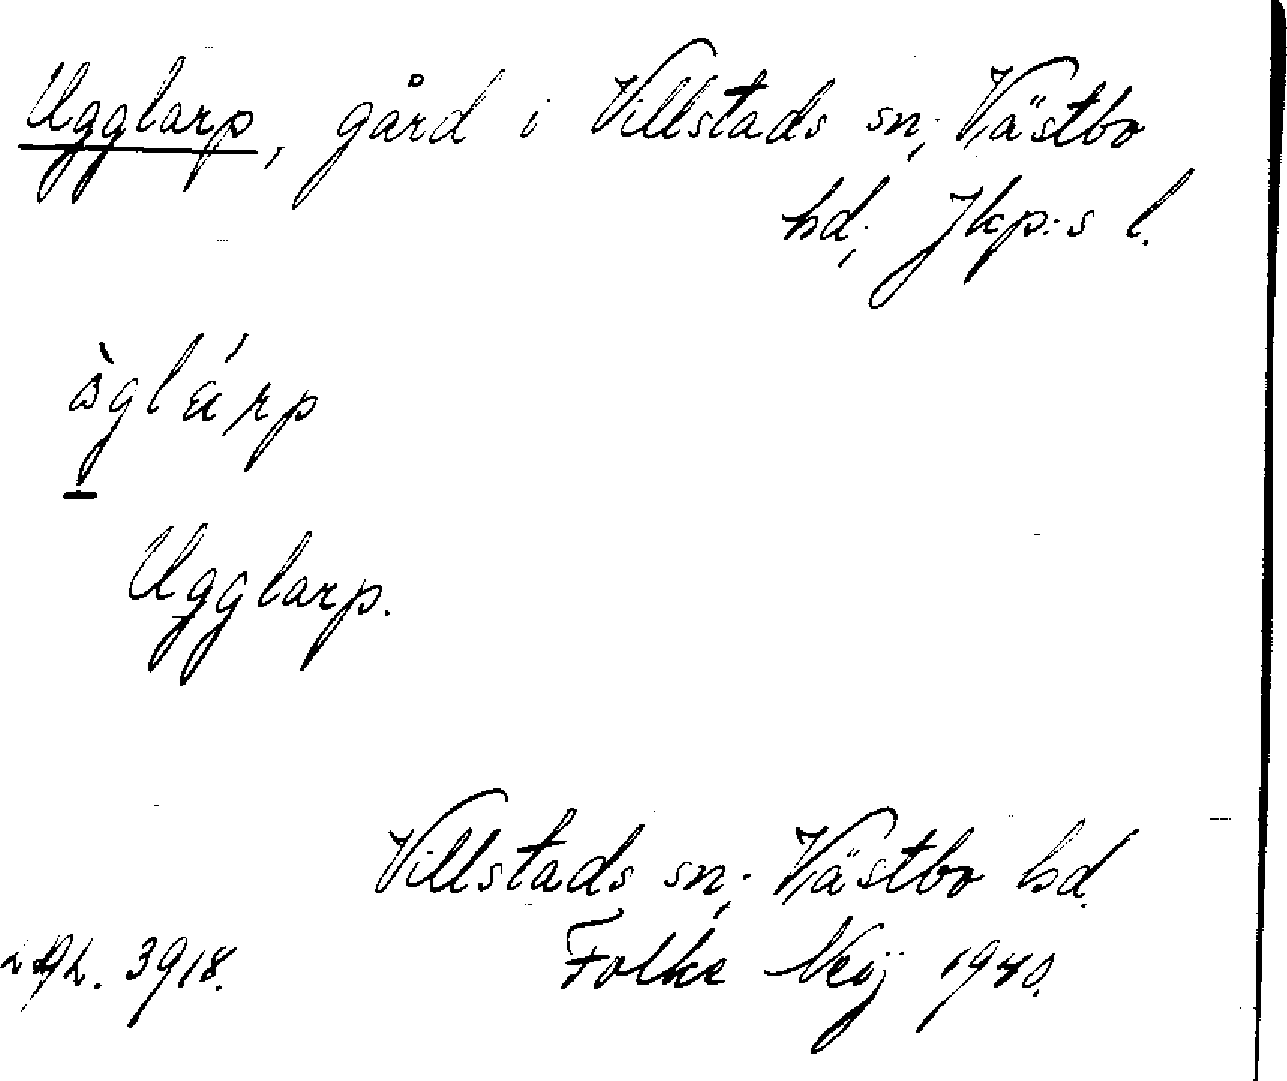 Ugglarp, gård i Villstads sn; Västbo
hd; Jkp:s l.
Ugglarp.
Villstads sn; Västbo hd.
3918. Folke Neij 1940.